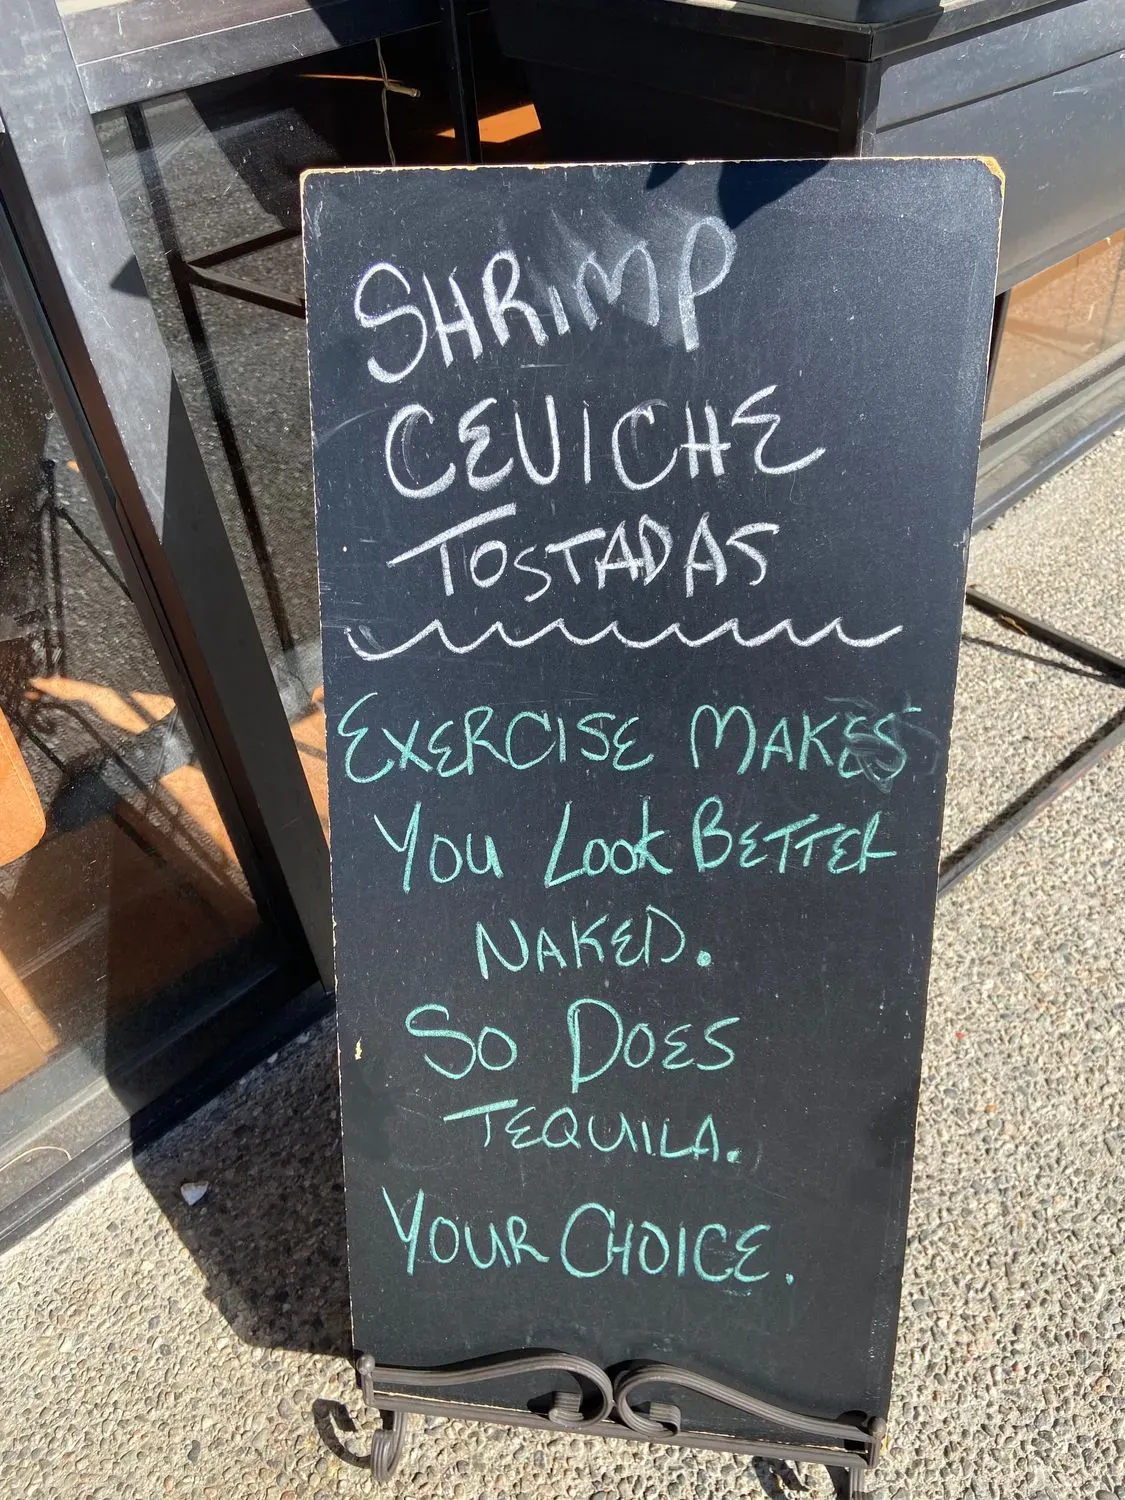 SHRIMP
CEVICHE
TOSTADAS
EXERCISE MAKES
YOU LOOK BETTER
NAKED.
SO DOES
TEQUILA.
YOUR CHOICE.